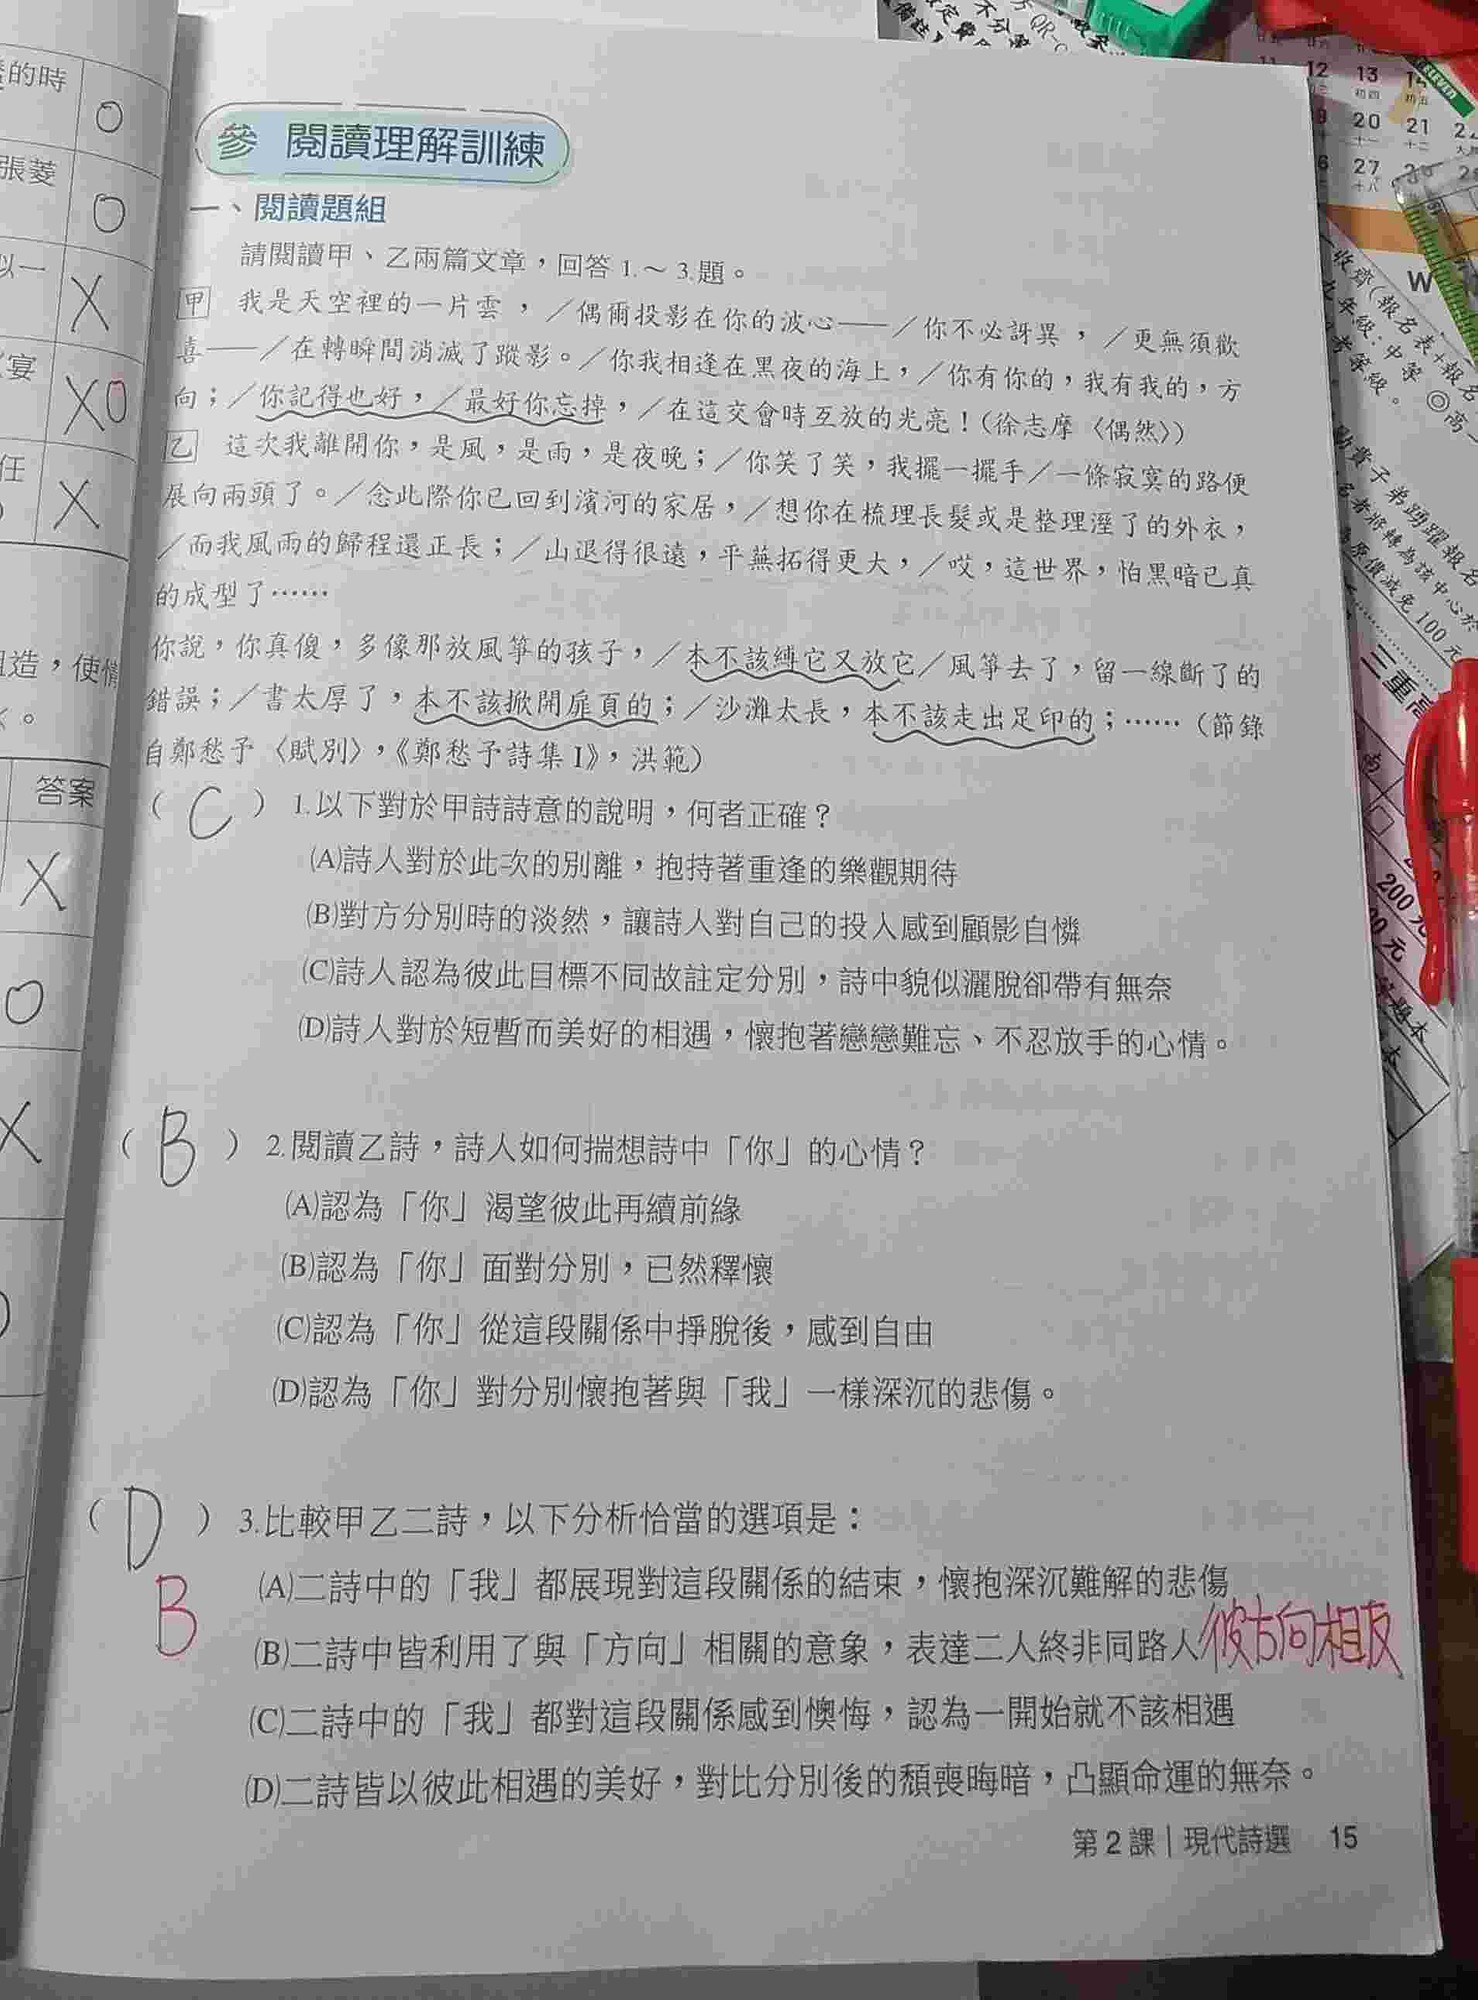 參 閱讀理解訓練
一、閱讀題組
請閱讀甲、乙兩篇文章，回答1.～3.題。
甲 我是天空裡的一片雲，／偶爾投影在你的波心──／你不必訝異，／更無須歡
喜──／在轉瞬間消滅了蹤影。／你我相逢在黑夜的海上，／你有你的，我有我的，方
向；／你記得也好，／最好你忘掉，／在這交會時互放的光亮！（徐志摩〈偶然〉）
乙 這次我離開你，是風，是雨，是夜晚；／你笑了笑，我擺一擺手／一條寂寞的路便
展向兩頭了。／念此際你已回到濱河的家居，／想你在梳理長髮或是整理溼了的外衣，
／而我風雨的歸程還正長；／山退得很遠，平蕪拓得更大，／哎，這世界，怕黑暗已真
的成型了……
你說，你真傻，多像那放風箏的孩子，／本不該縛它又放它／風箏去了，留一線斷了的
錯誤；／書太厚了，本不該掀開扉頁的；／沙灘太長，本不該走出足印的；……（節錄
自鄭愁予〈賦別〉，《鄭愁予詩集I》，洪範）
（ C ）1.以下對於甲詩詩意的說明，何者正確？
(A)詩人對於此次的別離，抱持著重逢的樂觀期待
(B)對方分別時的淡然，讓詩人對自己的投入感到顧影自憐
(C)詩人認為彼此目標不同故註定分別，詩中貌似灑脫卻帶有無奈
(D)詩人對於短暫而美好的相遇，懷抱著戀戀難忘、不忍放手的心情。
（ B ）2.閱讀乙詩，詩人如何揣想詩中「你」的心情？
(A)認為「你」渴望彼此再續前緣
(B)認為「你」面對分別，已然釋懷
(C)認為「你」從這段關係中掙脫後，感到自由
(D)認為「你」對分別懷抱著與「我」一樣深沉的悲傷。
（ D ）3.比較甲乙二詩，以下分析恰當的選項是：
B
(A)二詩中的「我」都展現對這段關係的結束，懷抱深沉難解的悲傷
(B)二詩中皆利用了與「方向」相關的意象，表達二人終非同路人
彼方向相反
(C)二詩中的「我」都對這段關係感到懊悔，認為一開始就不該相遇
(D)二詩皆以彼此相遇的美好，對比分別後的頹喪晦暗，凸顯命運的無奈。
第2課｜現代詩選 15
的時
O
張菱
O
以一
X
宴
XO
任
X
造，使情
。
答案
X
O
X
12 13 14
20 21
27
W
收齊(報名表+報名
高一
子弟踴躍報名
名者將轉為該中心於
原價減免100元
三重高
200元